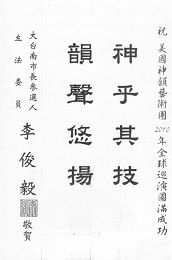 祝 美國神韻藝術團2010年全球巡演圓滿成功
神乎其技
韻聲悠揚
大台南市長參選人
立法委員
李俊毅
敬賀